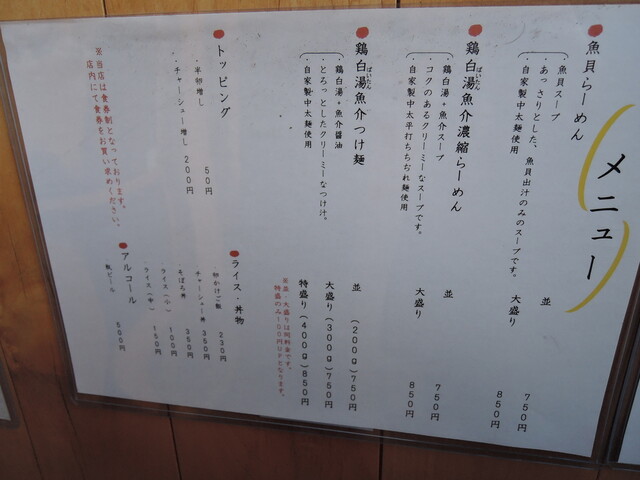 メニュー
魚貝らーめん
魚貝スープ
・あっさりとした、魚貝出汁のみのスープです。
・自家製中太麺使用
並 750円
大盛り 850円
鶏白湯魚介濃縮らーめん
ぱいたん
鶏白湯+魚介スープ
・コクのあるクリーミーなスープです。
・自家製中太平打ちちぢれ麺使用
並 750円
大盛り 850円
鶏白湯魚介つけ麺
ぱいたん
鶏白湯+魚介醤油
・とろっとしたクリーミーなつけ汁。
・自家製中太麺使用
並 (200g) 750円
大盛り (300g) 750円
特盛り (400g) 850円
※並・大盛りは同料金です。
特盛のみ100円UPとなります。
トッピング
・半卵増し 50円
・チャーシュー増し 200円
ライス・丼物
卵かけご飯 230円
チャーシュー丼 350円
そぼろ丼 350円
ライス(小) 100円
ライス(中) 150円
アルコール
瓶ビール 500円
※当店は食券制となっております。
店内にて食券をお買い求めください。